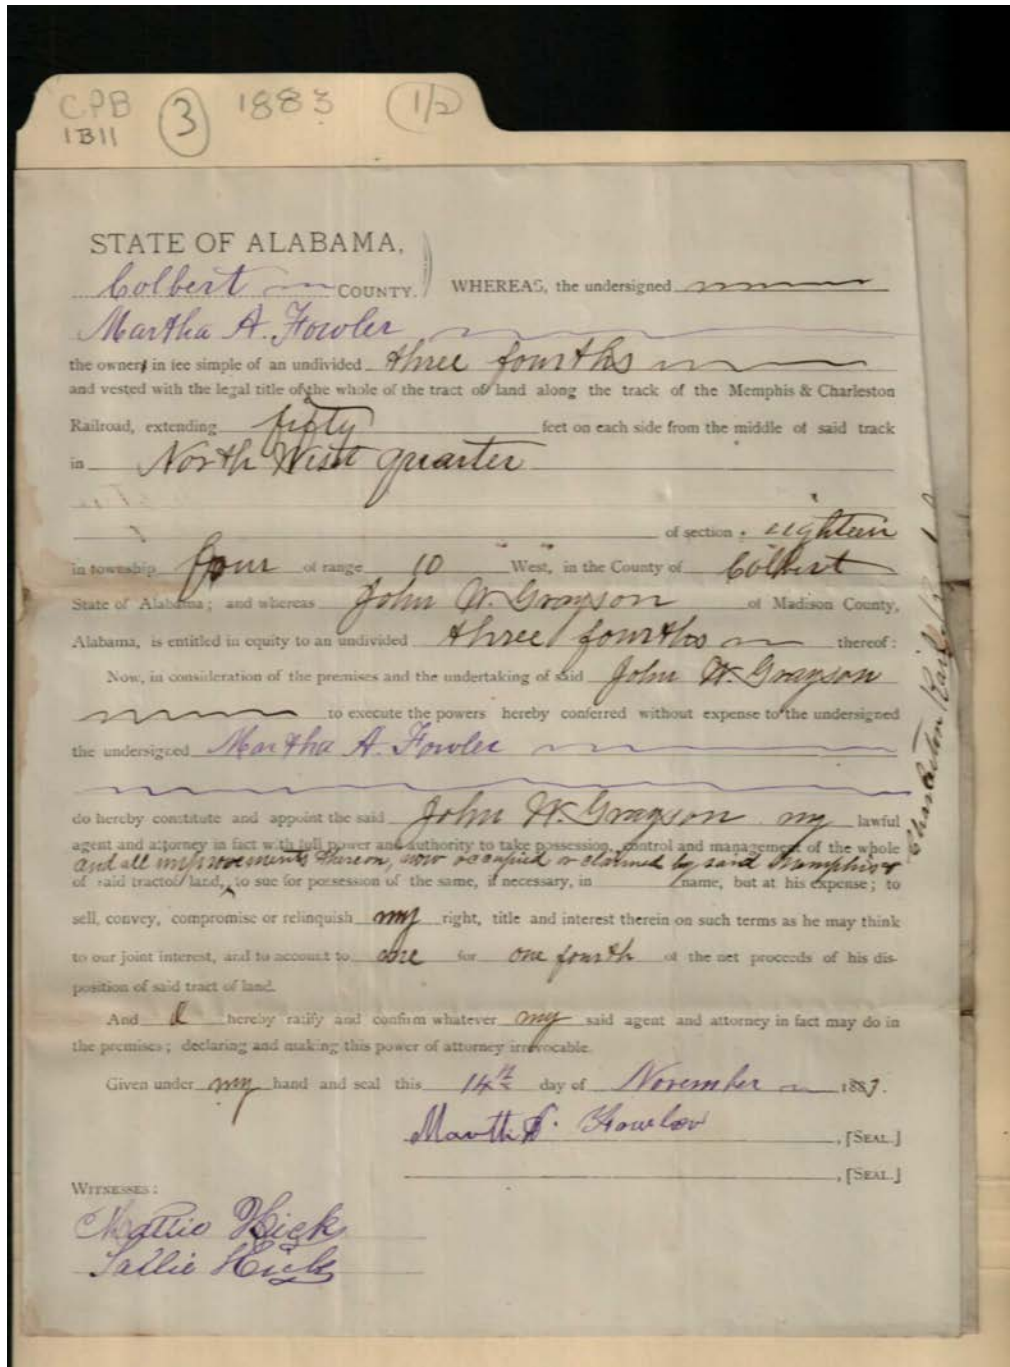 CPB 3 1883 1/2
1B11
STATE OF ALABAMA,
Colbert COUNTY. WHEREAS, the undersigned
Martha A. Fowler
the owner in fee simple of an undivided three fourths
and vested with the legal title of the whole of the tract of land along the track of the Memphis & Charleston
Railroad, extending fifty feet on each side from the middle of said track
in North West quarter
of section eighteen
in township four of range 10 West, in the County of Colbert
State of Alabama; and whereas John W. Grayson of Madison County,
Alabama, is entitled in equity to an undivided three fourths thereof:
Now, in consideration of the premises and the undertaking of said John W. Grayson
to execute the powers hereby conferred without expense to the undersigned
the undersigned Martha A. Fowler
do hereby constitute and appoint the said John W. Grayson my lawful
agent and attorney in fact with full power and authority to take possession, control and management of the whole
and all improvements thereon, now occupied or claimed by said Memphis &
of said tract of land, to sue for possession of the same, if necessary, in name, but at his expense; to
sell, convey, compromise or relinquish my right, title and interest therein on such terms as he may think
to our joint interest, and to account to me for one fourth of the net proceeds of his dis-
position of said tract of land.
And I hereby ratify and confirm whatever my said agent and attorney in fact may do in
the premises; declaring and making this power of attorney irrevocable.
Given under my hand and seal this 14th day of November 1883.
Martha Fowler, [SEAL.]
, [SEAL.]
WITNESSES:
Mattie Hick
Sallie Hick
Charleston